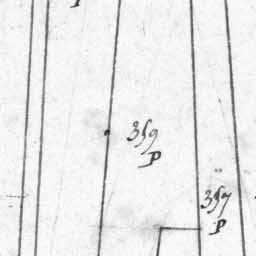 359
P
357
P